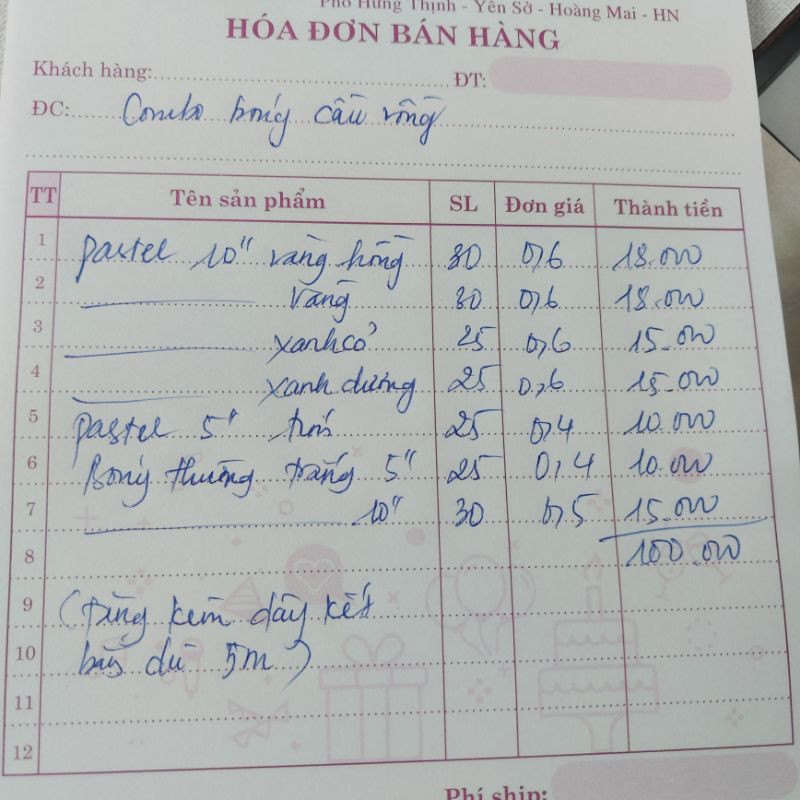 Phố Hưng Thịnh - Yên Sở - Hoàng Mai - HN
HÓA ĐƠN BÁN HÀNG
Khách hàng: ĐT:
ĐC: Combo bóng cầu vồng
TT Tên sản phẩm SL Đơn giá Thành tiền
1 pastel 10" vàng hồng 30 0,6 18.000
2 vàng 30 0,6 18.000
3 xanh cỏ 25 0,6 15.000
4 xanh dương 25 0,6 15.000
5 pastel 5" 25 0,4 10.000
6 Bóng thường trắng 5" 25 0,4 10.000
7 10" 30 0,5 15.000
8 100.000
9 (tặng kèm dây kết
10 dù 5m)
11
12
Phí ship: